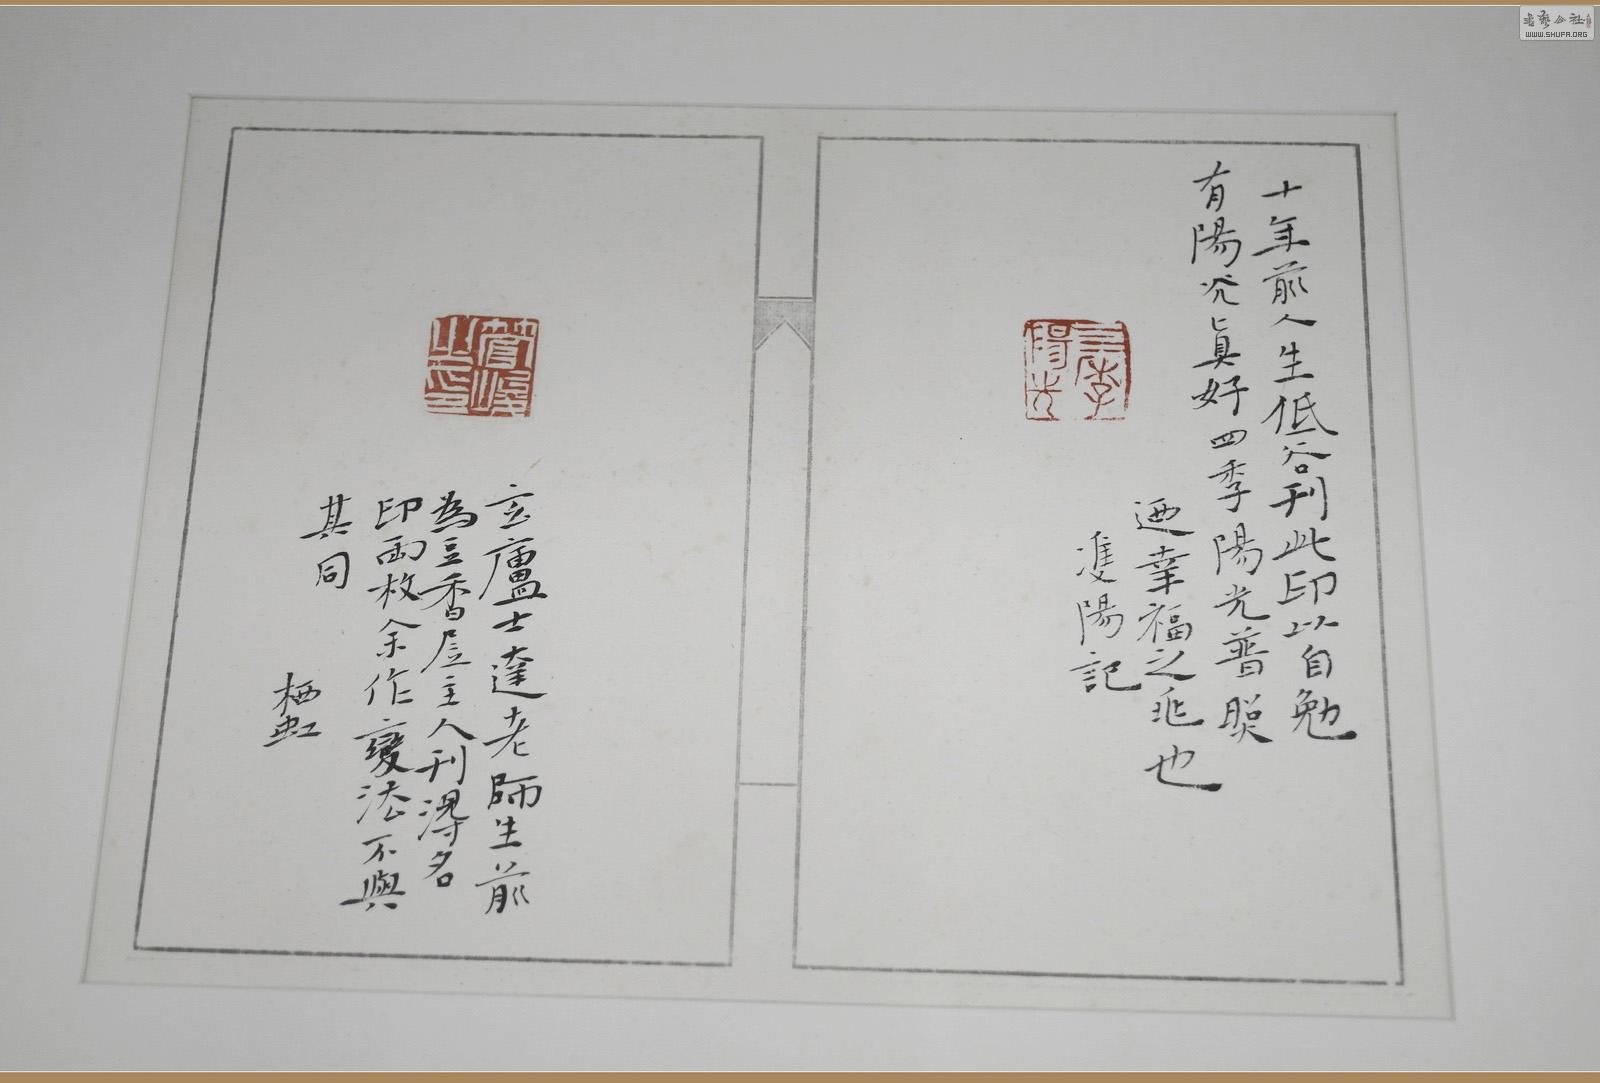 十年前人生低谷刊此印以自勉
有陽光真好四季陽光普照
迺幸福之兆也
雙陽記
四季陽光
玄廬士達老師生前
為豆香居主人刊得名
印兩枚余作變法不與
其同
栖虹
之印
書藝公社
WWW.SHUFA.ORG